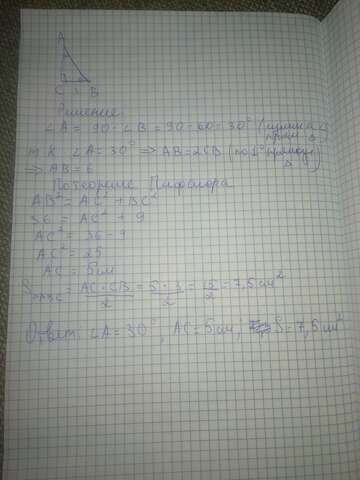 A
C 3 B
Решение:
∠A = 90 - ∠B = 90 - 60 = 30°
т.к. ∠A = 30° ⇒ AB = 2CB
⇒ AB = 6
По теореме Пифагора
AB² = AC² + BC²
36 = AC² + 9
AC² = 36 - 9
AC² = 25
AC = 5см
S ABC = AC · CB / 2 = 5 · 3 / 2 = 15 / 2 = 7,5 см²
Ответ: ∠A = 30°, AC = 5 см; S = 7,5 см²